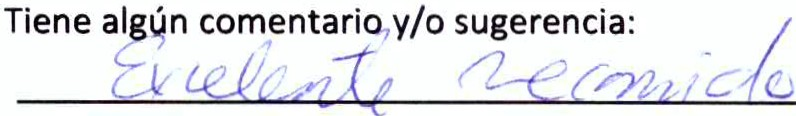 Tiene algún comentario y/o sugerencia:
Excelente recorrido